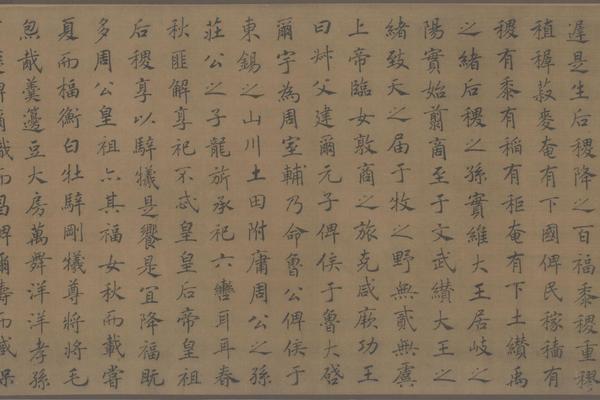 遲是生后稷降之百福黍稷重穋
稙穉菽麥奄有下國俾民稼穡有
稷有黍有稻有秬奄有下土纘禹
之緒后稷之孫實維大王居岐之
陽實始翦商至于文武纘大王之
緒致天之届于牧之野無貳無虞
上帝臨女敦商之旅克咸厥功王
曰叔父建爾元子俾侯于魯大啓
爾宇為周室輔乃命魯公俾侯于
東錫之山川土田附庸周公之孫
莊公之子龍旂承祀六轡耳耳春
秋匪解享祀不忒皇皇后帝皇祖
后稷享以騂犧是饗是宜降福既
多周公皇祖亦其福女秋而載嘗
夏而楅衡白牡騂剛犧尊將將毛
炰胾羹籩豆大房萬舞洋洋孝孫
俾爾熾而昌俾爾壽而臧保